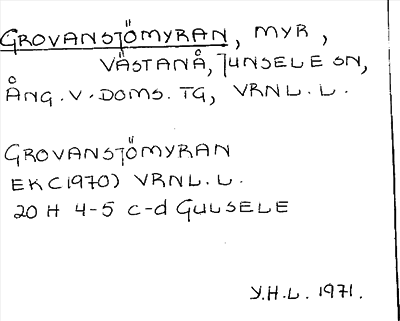 GROVANSJÖMYRAN, MYR,
VÄSTANÅ, JUNSELE SN,
ÅNG. V. DOMS. TG, VRNL. L.
GROVANSJÖMYRAN
EK(1970) VRNL. L.
20 H 4-5 c-d GULSELE
Y.H.L. 1971.